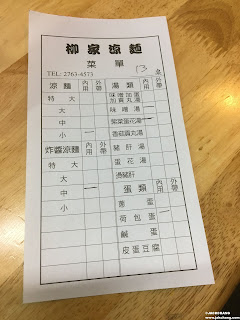 柳家涼麵
菜單
TEL: 2763-4573
13 桌
涼麵 內用 外帶
特大
大
中
小
炸醬涼麵 內用 外帶
特大
大
中
小
湯類 內用 外帶
味噌加蛋加貢丸湯
味噌湯
紫菜蛋花湯
香菇貢丸湯
豬肝湯
蛋花湯
過豬肝
蛋類 內用 外帶
蛋
荷包蛋
鹹蛋
皮蛋豆腐
©JAHCHANG
www.jahchang.com